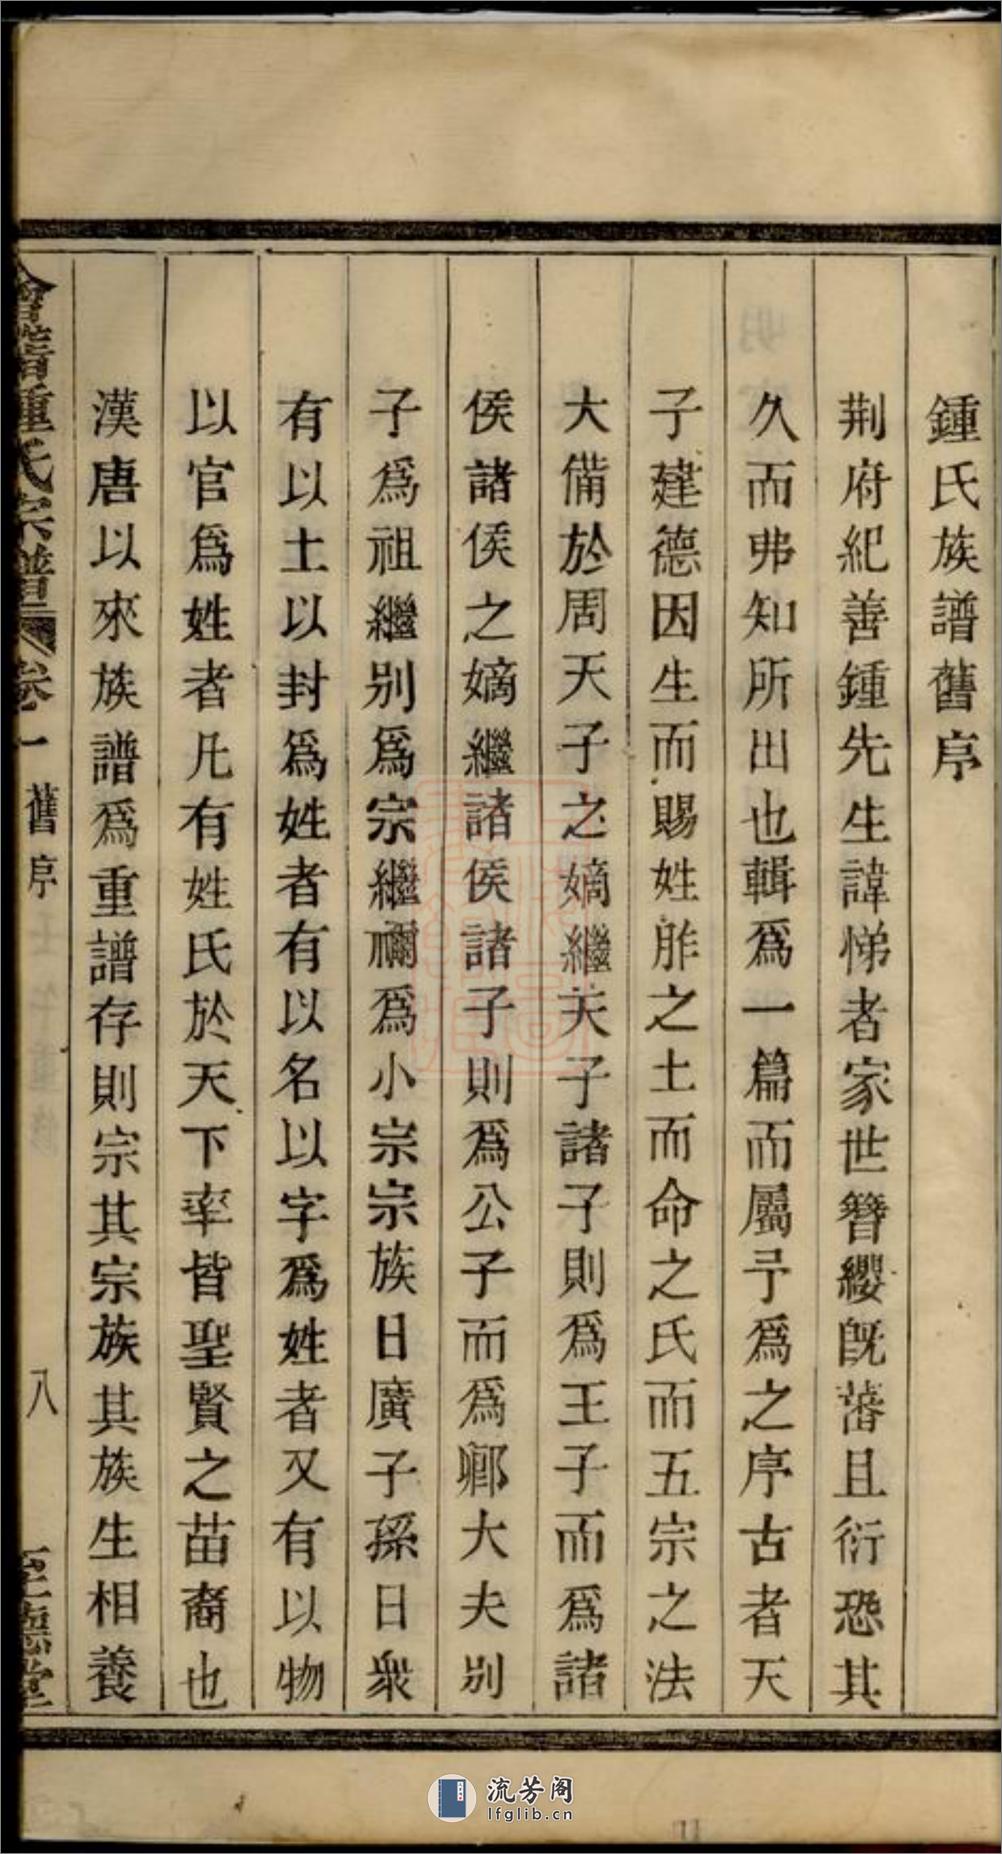 鍾氏族譜舊序
荆府紀善鍾先生諱悌者家世簪纓旣蕃且衍恐其
久而弗知所出也輯爲一篇而屬予爲之序古者天
子建德因生而賜姓胙之土而命之氏而五宗之法
大備於周天子之嫡繼天子諸子則爲王子而爲諸
侯諸侯之嫡繼諸侯諸子則爲公子而爲卿大夫別
子爲祖繼別爲宗繼禰爲小宗宗族日廣子孫日衆
有以土以封爲姓者有以名以字爲姓者又有以物
以官爲姓者凡有姓氏於天下率皆聖賢之苗裔也
漢唐以來族譜爲重譜存則宗其宗族其族生相養
會稽鍾氏宗譜 卷一 舊序 八 至德堂
流芳阁
lfglib.cn